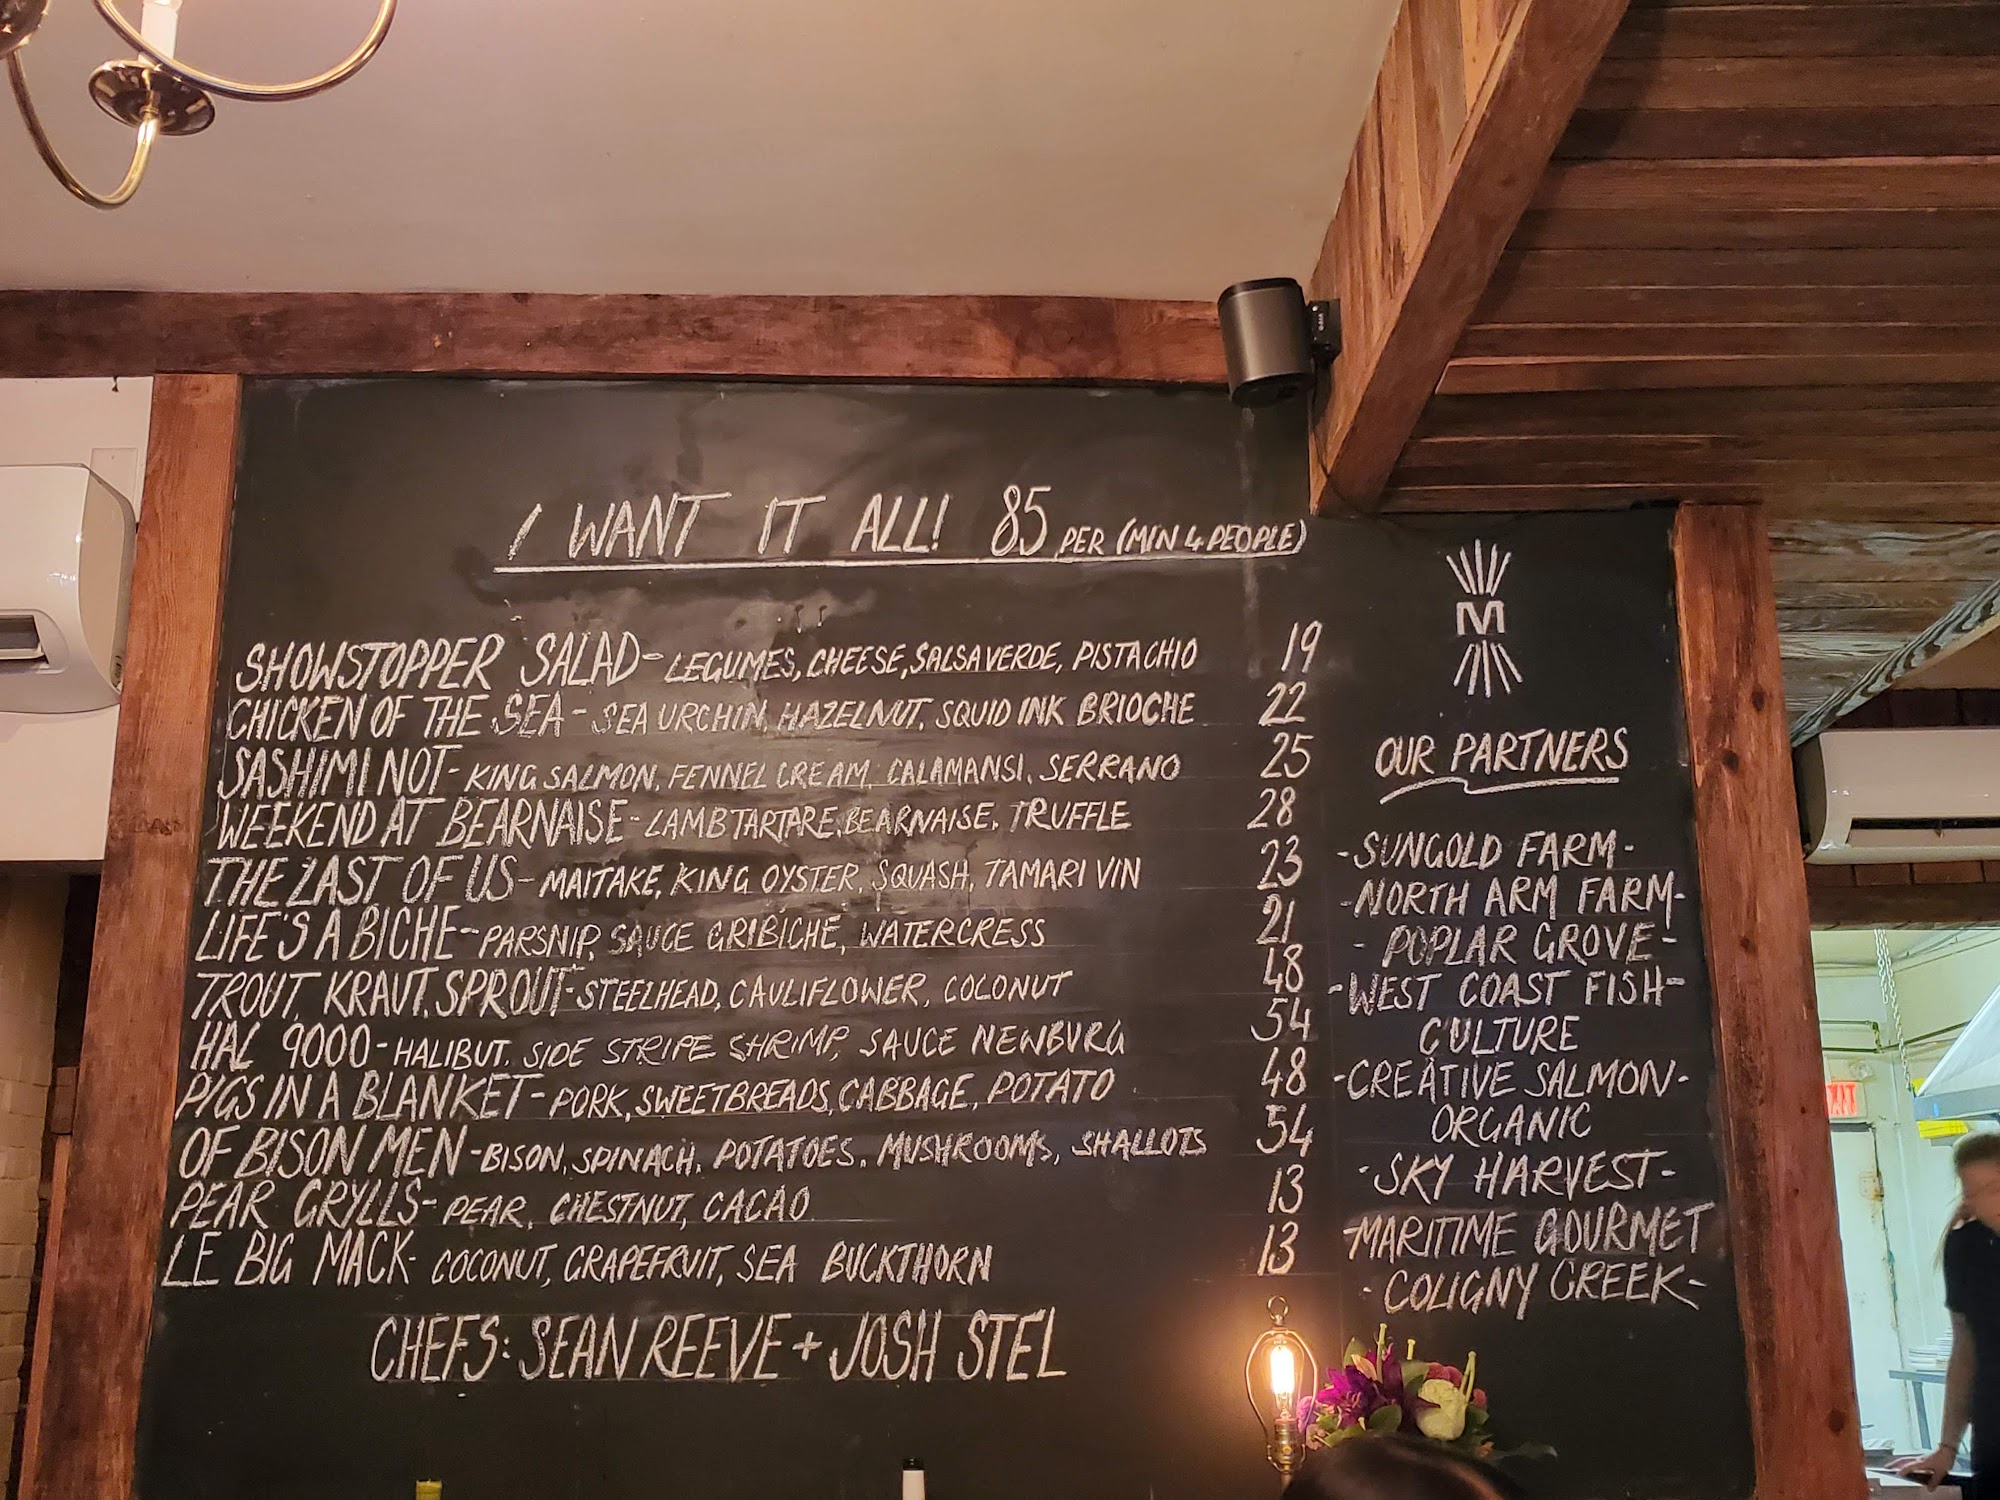 I WANT IT ALL! 85 PER (MIN 4 PEOPLE)
SHOWSTOPPER SALAD - LEGUMES, CHEESE, SALSA VERDE, PISTACHIO 19
CHICKEN OF THE SEA - SEA URCHIN, HAZELNUT, SQUID INK BRIOCHE 22
SASHIMI NOT - KING SALMON, FENNEL CREAM, CALAMANSI, SERRANO 25
WEEKEND AT BEARNAISE - LAMB TARTARE, BEARNAISE, TRUFFLE 28
THE LAST OF US - MAITAKE, KING OYSTER, SQUASH, TAMARI VIN 23
LIFE'S A BICHE - PARSNIP, SAUCE GRIBICHE, WATERCRESS 21
TROUT, KRAUT, SPROUT - STEELHEAD, CAULIFLOWER, COCONUT 48
HAL 9000 - HALIBUT, SIDE STRIPE SHRIMP, SAUCE NEWBURG 54
PIGS IN A BLANKET - PORK, SWEETBREADS, CABBAGE, POTATO 48
OF BISON MEN - BISON, SPINACH, POTATOES, MUSHROOMS, SHALLOTS 54
PEAR GRYLLS - PEAR, CHESTNUT, CACAO 13
LE BIG MACK - COCONUT, GRAPEFRUIT, SEA BUCKTHORN 13
CHEFS: SEAN REEVE + JOSH STEL
M
OUR PARTNERS
- SUNGOLD FARM -
- NORTH ARM FARM -
- POPLAR GROVE -
- WEST COAST FISH -
CULTURE
- CREATIVE SALMON -
ORGANIC
- SKY HARVEST -
- MARITIME GOURMET
- COLIGNY CREEK -
EXIT